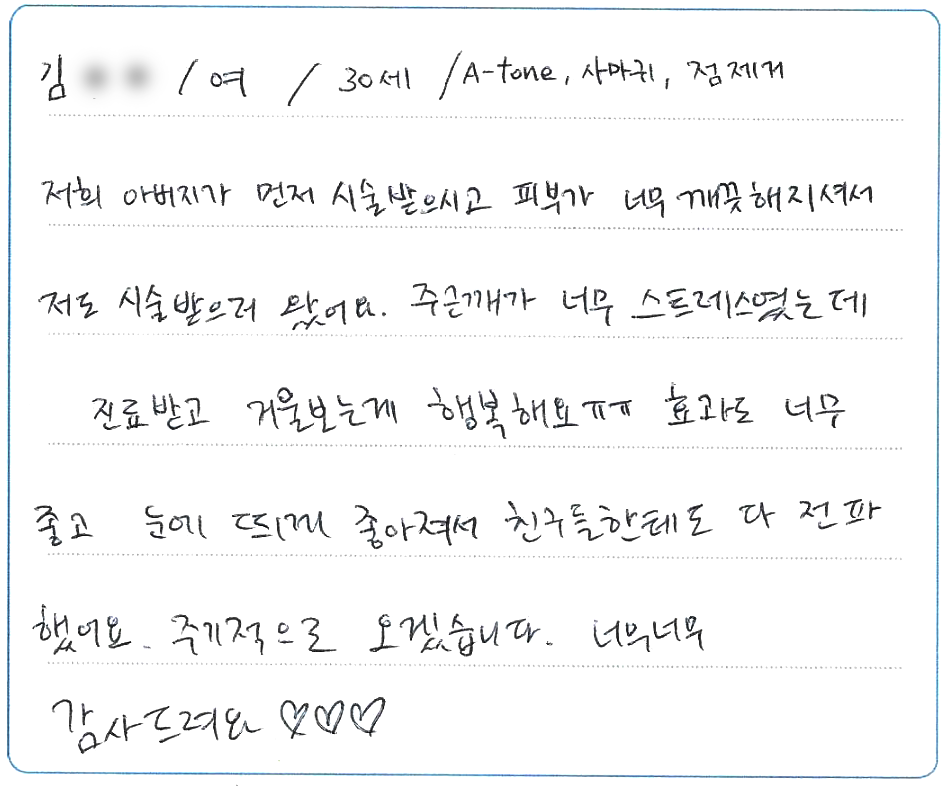 김 / 여 / 30세 / A-tone, 사마귀, 점제거
저희 아버지가 먼저 시술받으시고 피부가 너무 깨끗해지셔서
저도 시술받으러 왔어요. 주근깨가 너무 스트레스였는데
진료받고 거울보는게 행복해요ㅠㅠ 효과도 너무
좋고 눈에 띄게 좋아져서 친구들한테도 다 전파
했어요. 주기적으로 오겠습니다. 너무너무
감사드려요 ♡♡♡